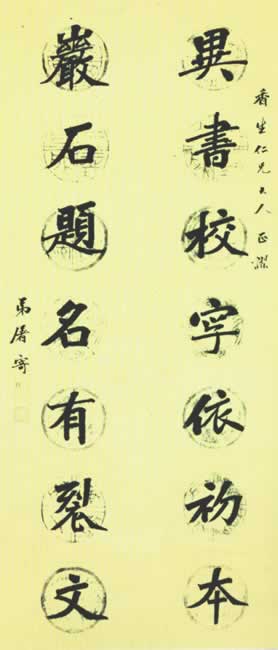 香生仁兄大人正灋
異書校字依初本
巖石題名有裂文
弟屠寄